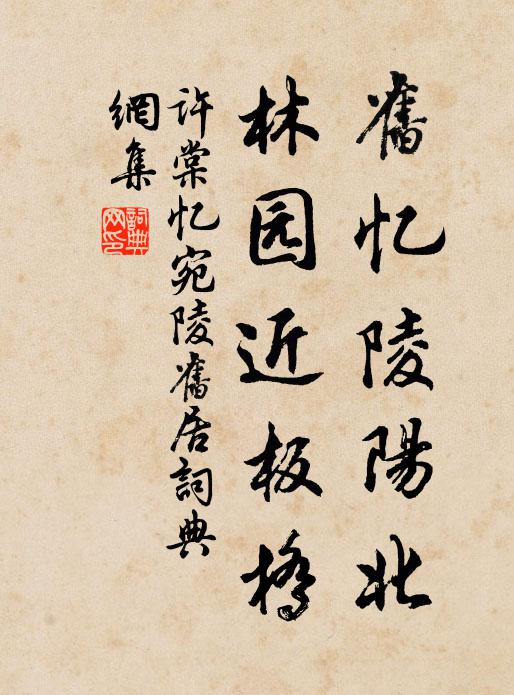 舊忆陵陽北
林园近板橋
许棠忆宛陵舊居詞典
網集
詞典
网印